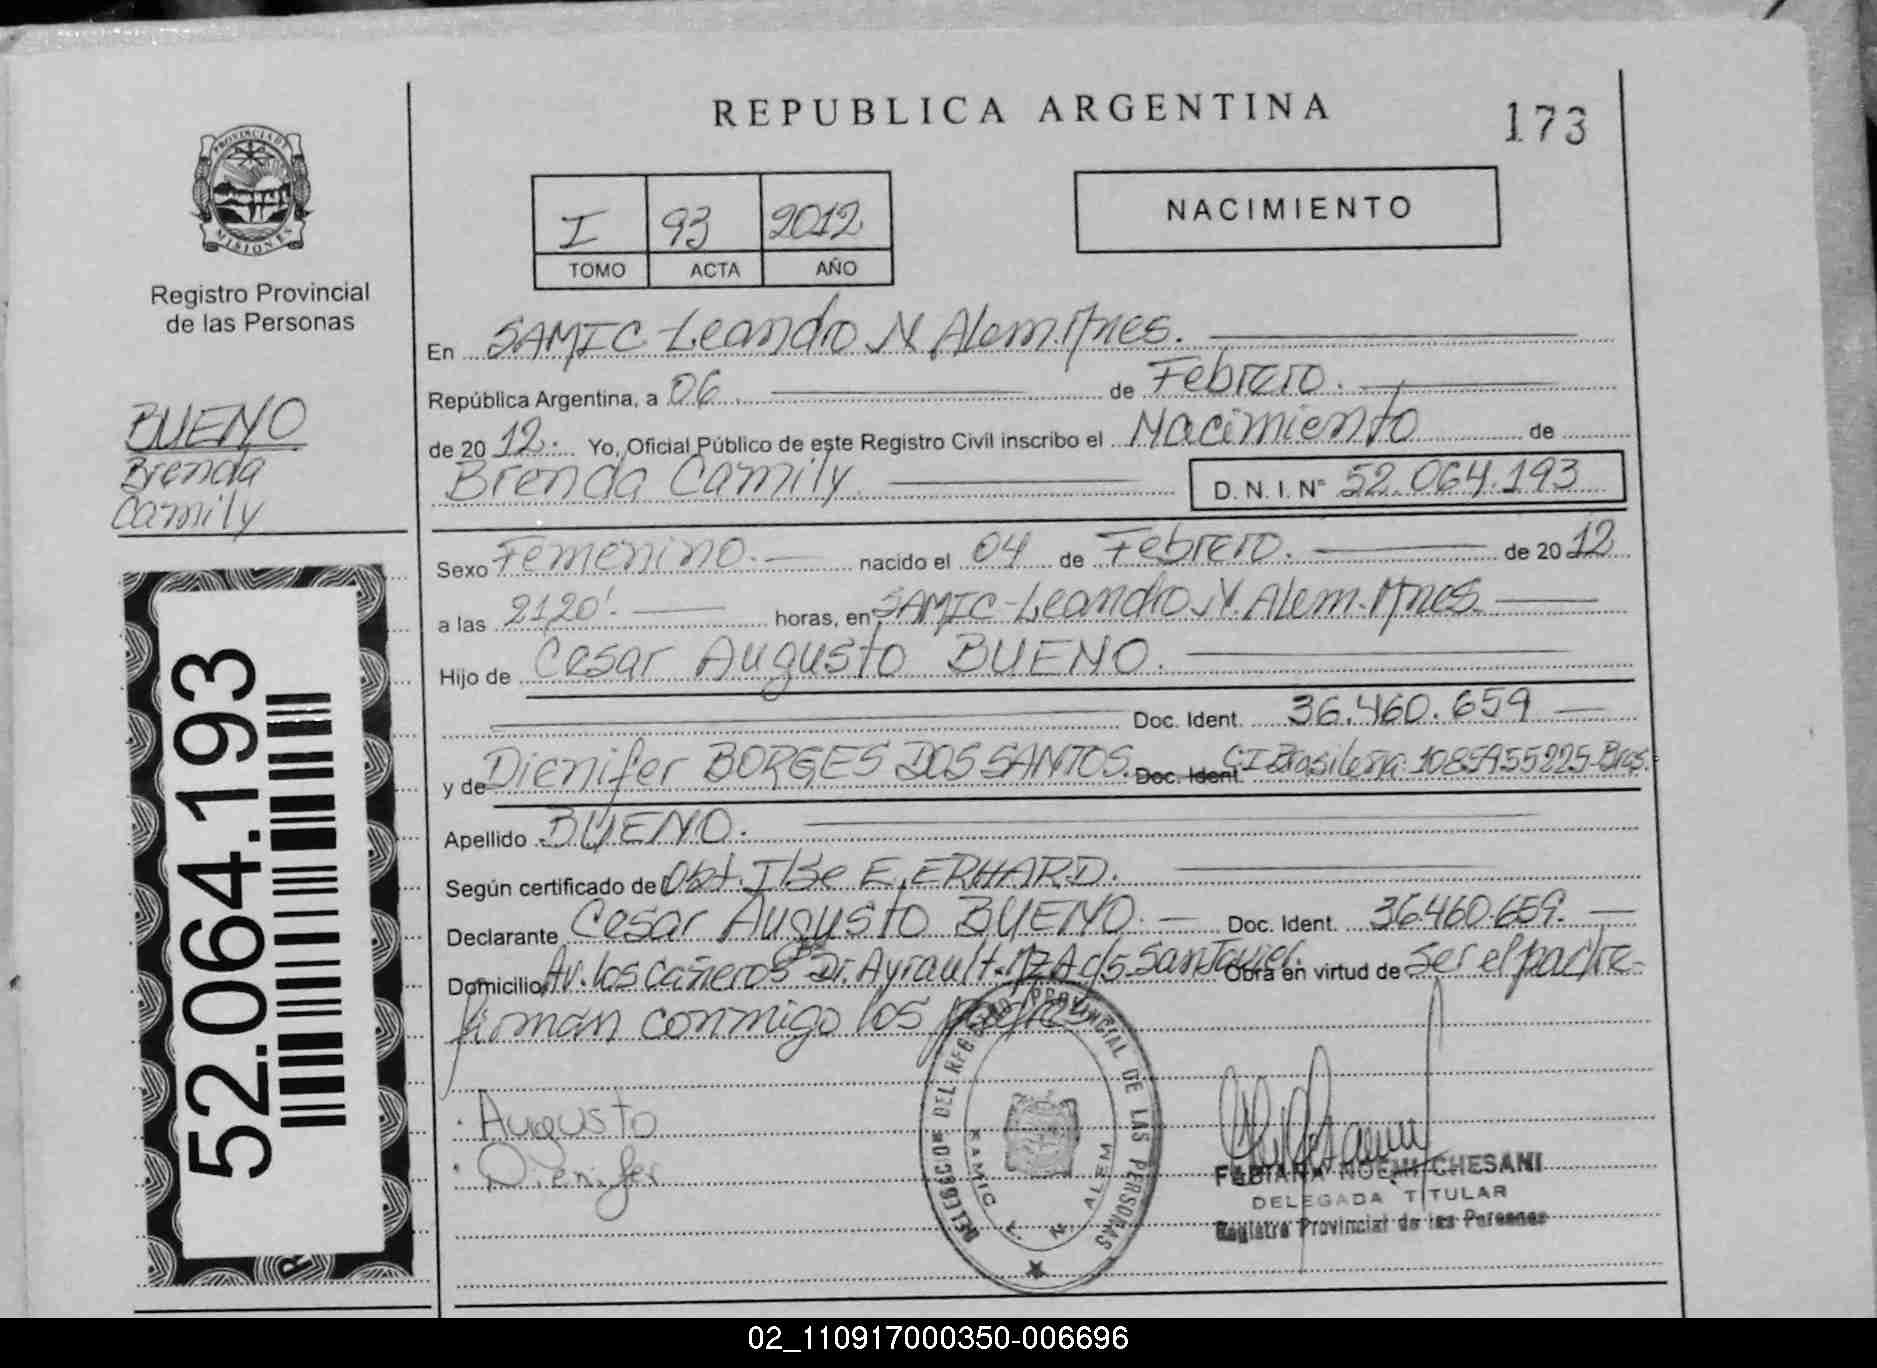 REPUBLICA ARGENTINA
173
PROVINCIA DE
MISIONES
Registro Provincial
de las Personas
I 93 2012
TOMO ACTA AÑO
NACIMIENTO
BUENO
Brenda
Camily
52.064.193
En SAMIC Leandro N Alem. Mnes.
República Argentina, a 06 de Febrero.
de 20 12. Yo, Oficial Público de este Registro Civil inscribo el Nacimiento de
Brenda Camily D. N. I. Nº 52.064.193
Sexo Femenino. nacido el 04 de Febrero. de 20 12
a las 21,20'. horas, en SAMIC-Leandro N. Alem. Mnes.
Hijo de Cesar Augusto BUENO.
Doc. Ident. 36.460.659
y de Dienifer BORGES DOS SANTOS. Doc. Ident. CI Brasilera 1085955225-Bras.
Apellido BUENO.
Según certificado de Obst. Ilse E. ERHARD.
Declarante Cesar Augusto BUENO. Doc. Ident. 36.460.659.
Domicilio Av. los cañeros Dr. Ayrault. MZA c/5 San Javier. Obra en virtud de ser el padre-
firman conmigo los padres
Augusto
Dienifer
DELEGACION DEL REGISTRO PROVINCIAL DE LAS PERSONAS
SAMIC L. N. ALEM
FABIANA NOEMI CHESANI
DELEGADA TITULAR
Registro Provincial de las Personas
02_110917000350-006696